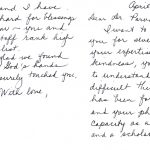 and I have
hard for blessings
you and
staff rank high
list.
glad we found
God's hands
surely touched you.
With love,
April
Dear Dr. Par
I want to
you for
your expertise
kindness, you
to understand
difficult th
has been for
and your ph
capacity as a
and a schola